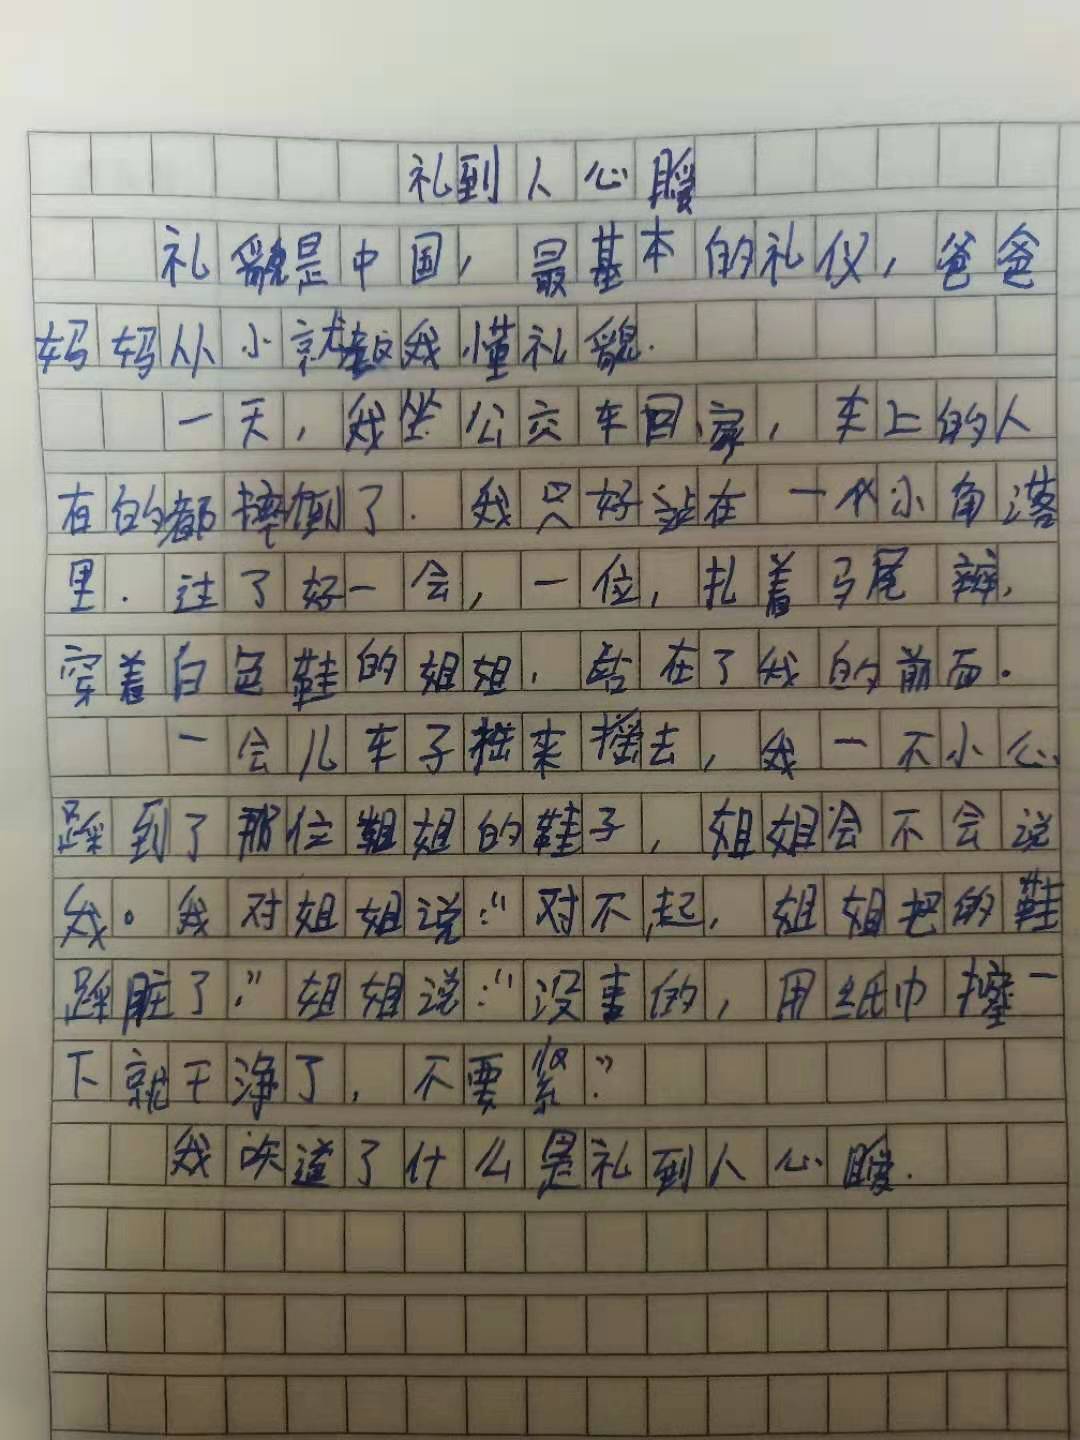 礼到人心暖
礼貌是中国,最基本的礼仪,爸爸
妈妈从小就教我懂礼貌.
一天,我坐公交车回家,车上的人
有的都摔倒了.我只好站在一个小角落
里.过了好一会,一位,扎着马尾辫,
穿着白色鞋的姐姐.站在了我的前面.
一会儿车子摇来摇去,我一不小心
踩到了那位姐姐的鞋子,姐姐会不会说
我。我对姐姐说:“对不起,姐姐把的鞋
踩脏了.”姐姐说:“没事的,用纸巾擦一
下就干净了,不要紧.”
我知道了什么是礼到人心暖.